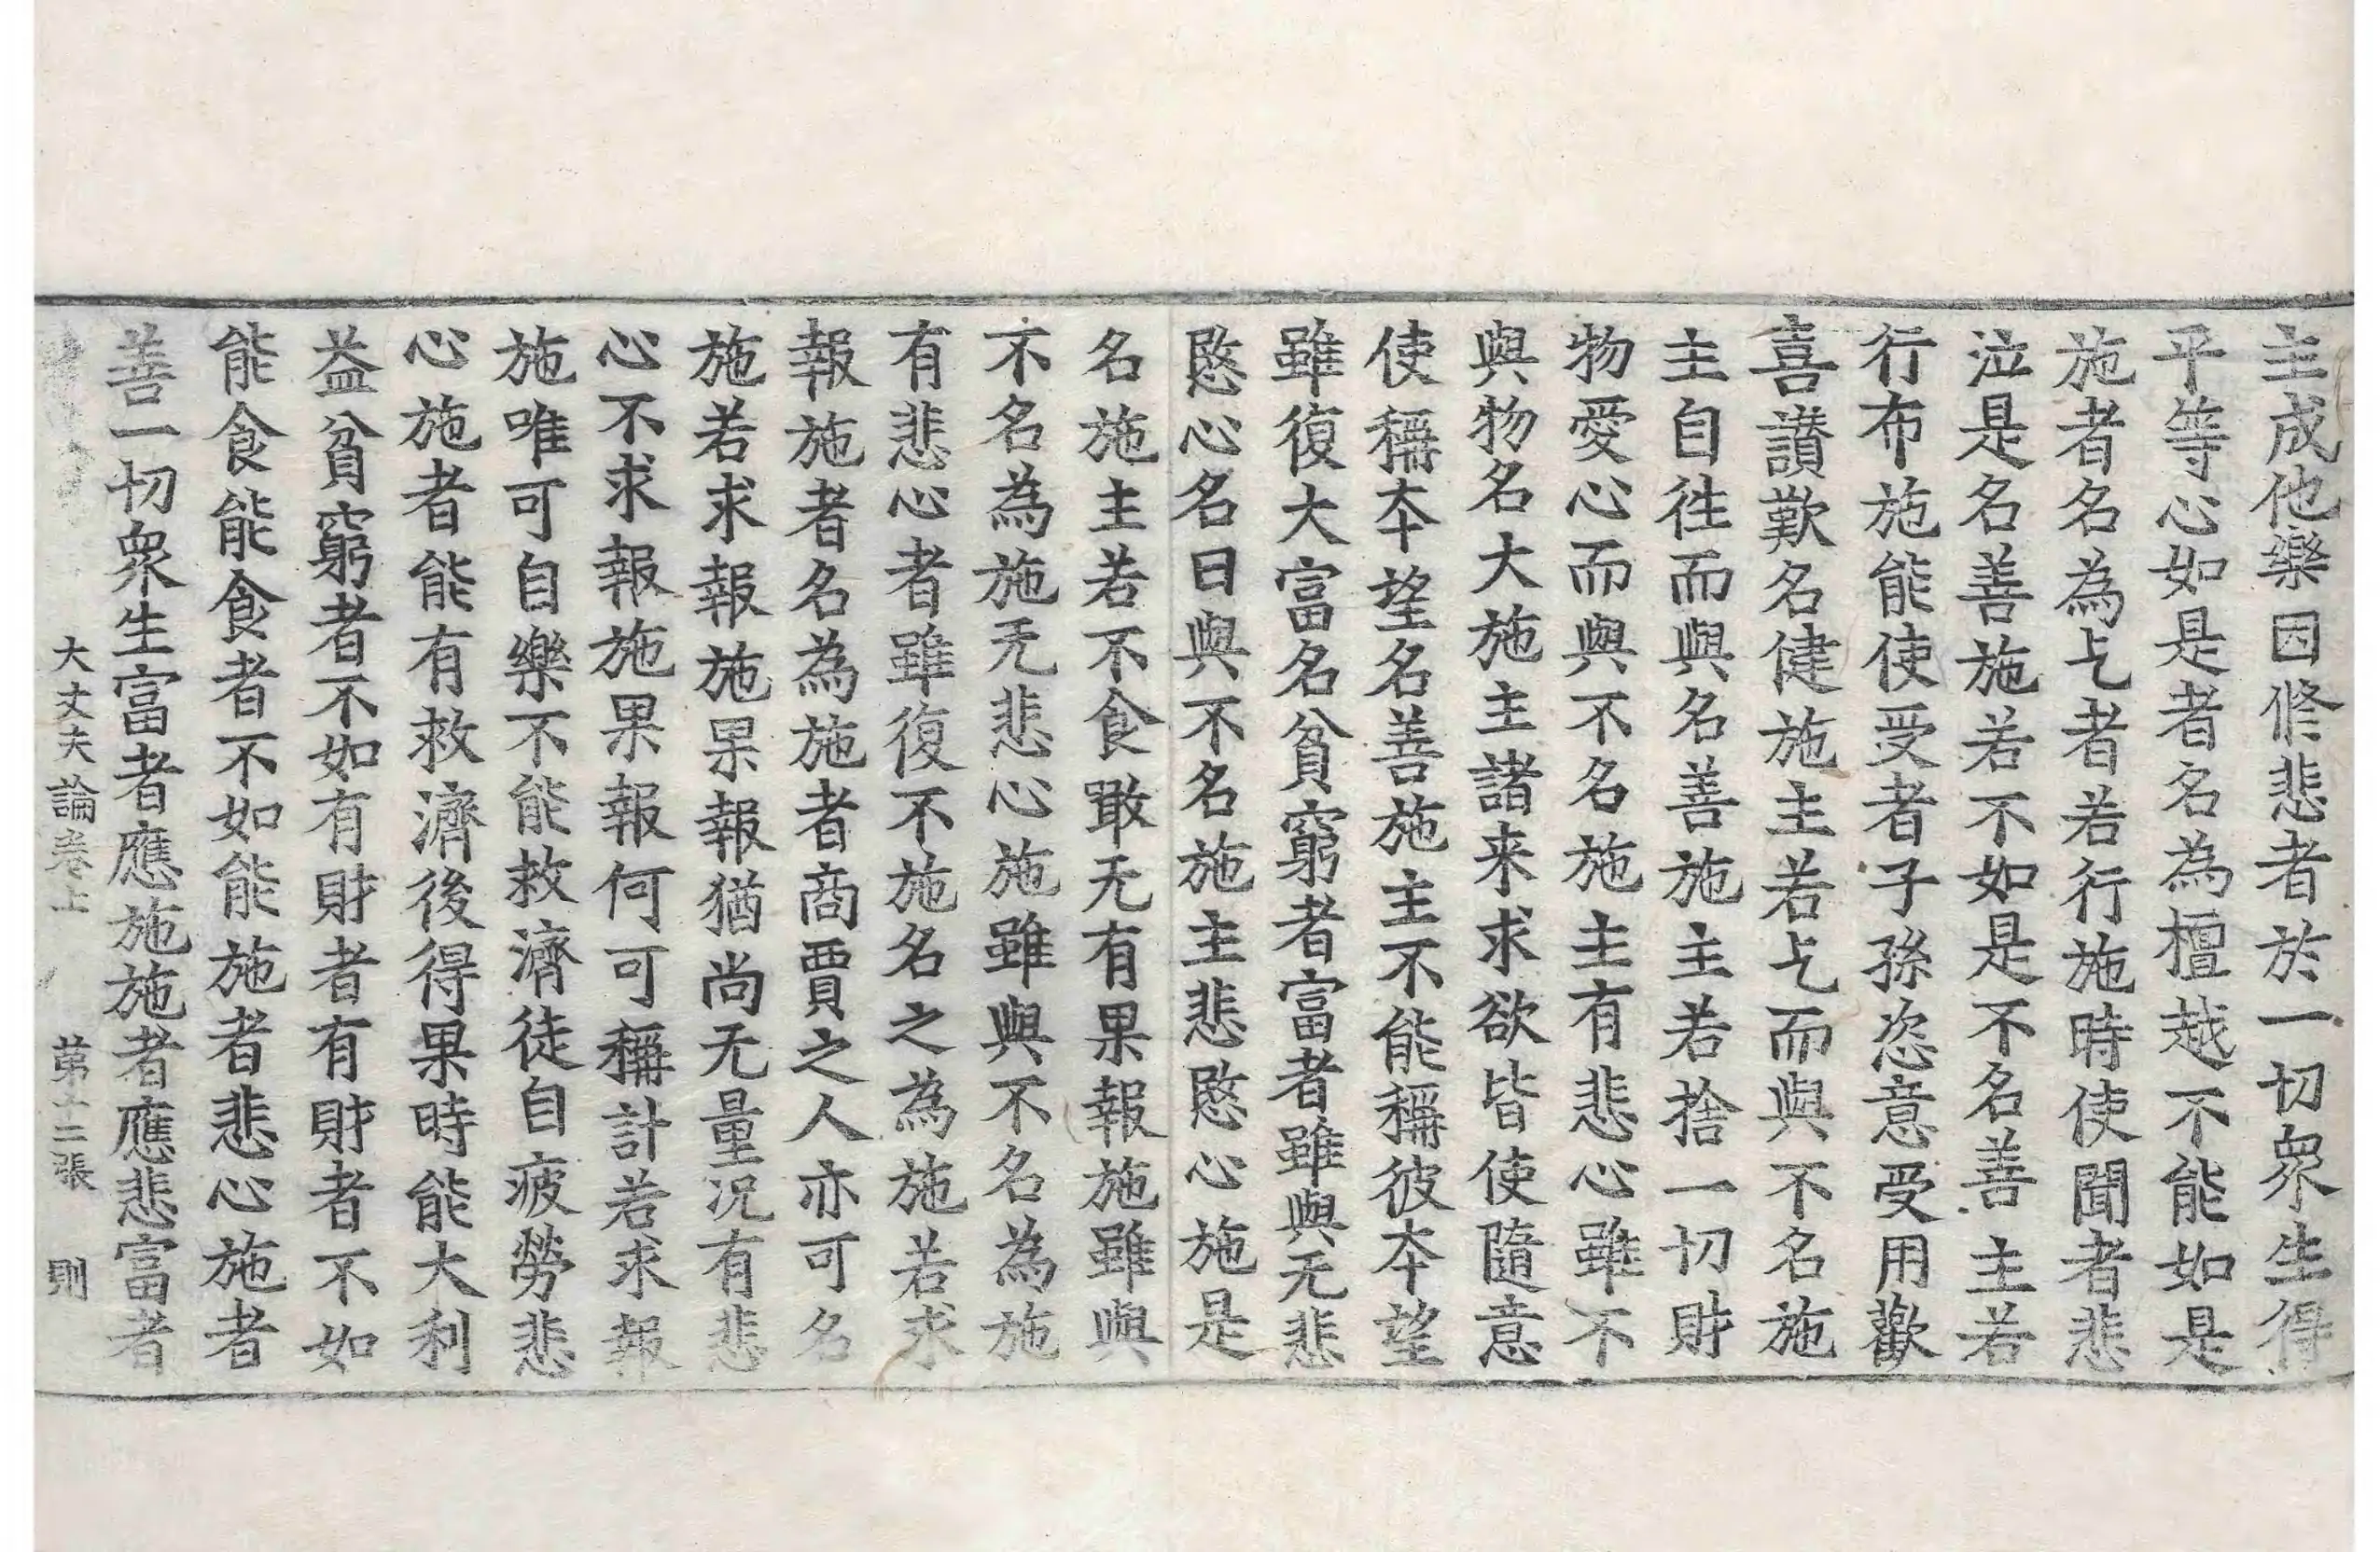 主成他樂因修悲者於一切衆生得
平等心如是者名為檀越不能如是
施者名為乞者若行施時使聞者悲
泣是名善施若不如是不名善主若
行布施能使受者子孫恣意受用歡
喜讃歎名健施主若乞而與不名施
主自徃而與名善施主若捨一切財
物愛心而與不名施主有悲心雖不
與物名大施主諸来求欲皆使隨意
使稱夲望名善施主不能稱彼夲望
雖復大富名貧窮者富者雖與无悲
愍心名曰與不名施主悲愍心施是
名施主若不食噉无有果報施雖與
不名為施无悲心施雖與不名為施
有悲心者雖復不施名之為施若求
報施者名為施者商賈之人亦可名
施若求報施果報猶尚无量况有悲
心不求報施果報何可稱計若求報
施唯可自樂不能救濟徒自疲勞悲
心施者能有救濟後得果時能大利
益貧窮者不如有財者有財者不如
能食能食者不如能施者悲心施者
善一切衆生富者應施施者應悲富者
大丈夫論卷上 苐十二張 則